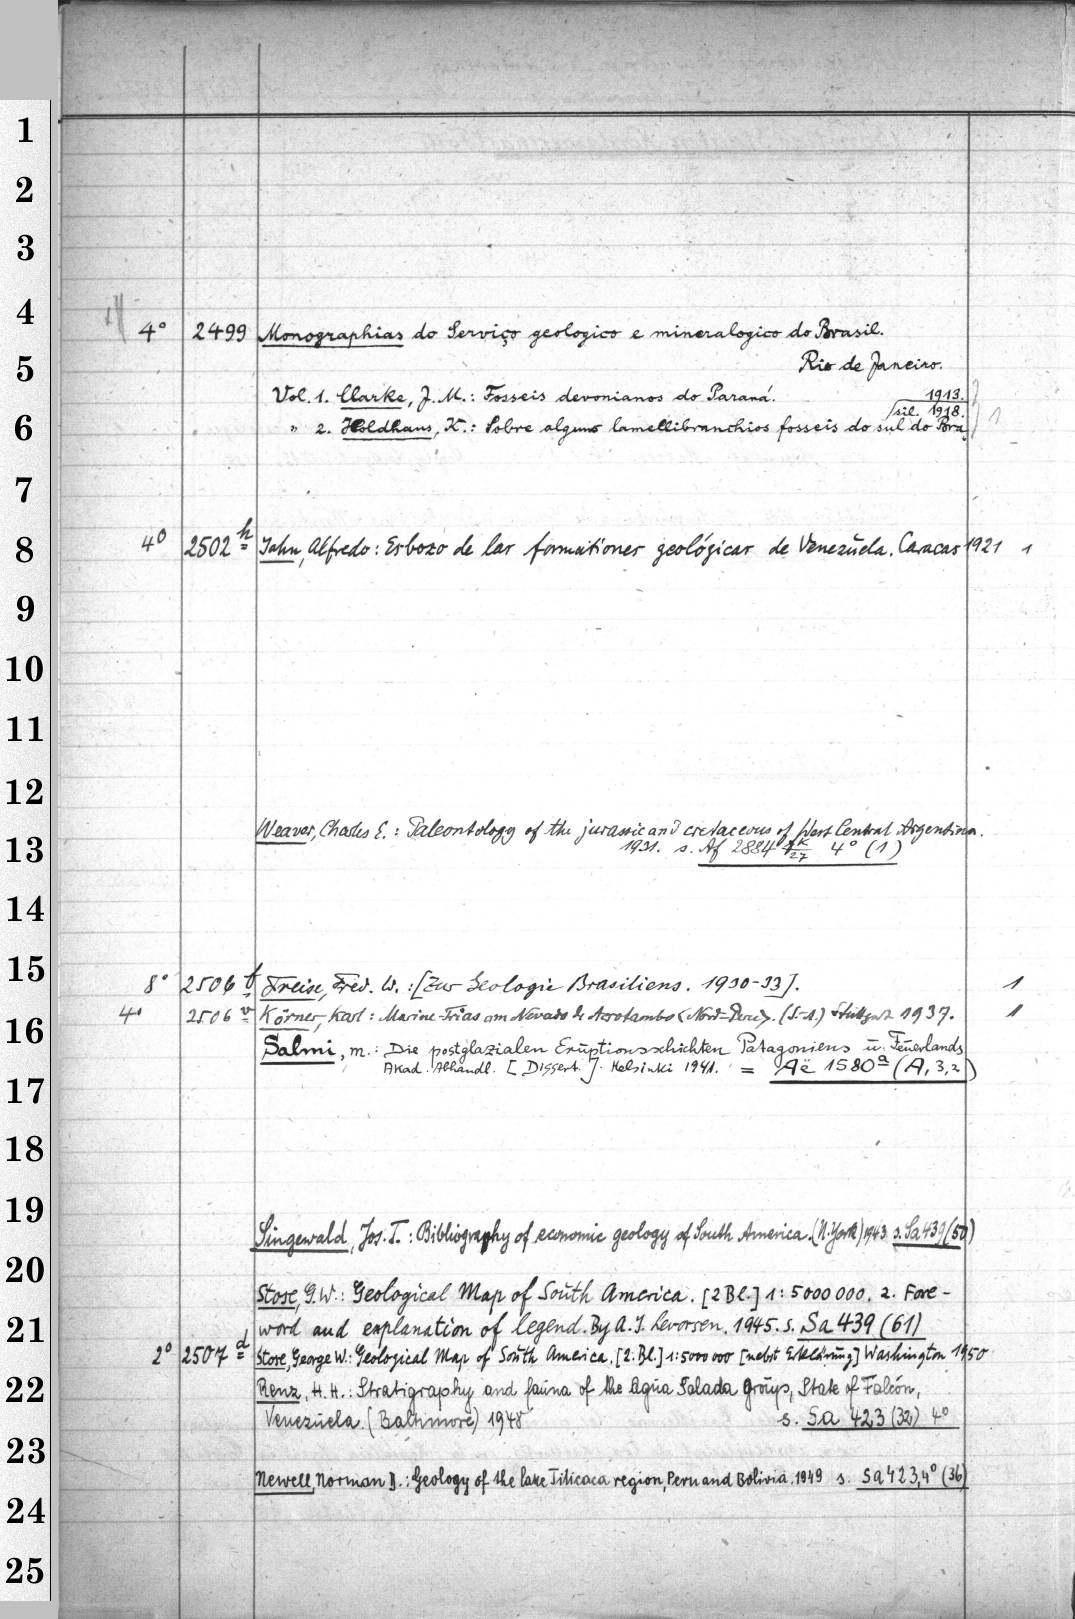 1
2
3
4
4° 2499 Monographias do Serviço geologico e mineralogico do Brasil.
5
Rio de Janeiro.
Vol. 1. Clarke, J. M.: Fosseis devonianos do Paraná. 1913.
6
" 2. Holdhaus, K.: Sobre alguns lamellibranchios fosseis do sul do Brasil. 1918. 1
7
8
4° 2502 h Jahn, Alfredo: Esbozo de las formaciones geológicas de Venezuela. Caracas 1921 1
9
10
11
12
Weaver, Charles E.: Paleontology of the jurassic and cretaceous of West Central Argentina.
13
1931. s. Af 2884 K/27 4° (1)
14
15
8° 2506 f Freise, Fred. W.: [Zur Geologie Brasiliens. 1930-33]. 1
16
4° 2506 v Körner, Karl: Marine Trias am Nevado de Acrotambo <Nord-Peru>. (S.-A.) Stuttgart 1937. 1
Salmi, M.: Die postglazialen Eruptionsschichten Patagoniens u. Feuerlands
17
Akad. Abhandl. [Dissert.] Helsinki 1941. = Aë 1580a (A,3,2)
18
19
Singewald, Jos. T.: Bibliography of economic geology of South America. (N. York) 1943 s. Sa 439 (50)
20
Stose, G.W.: Geological Map of South America. [2 Bl.] 1:5000000. 2. Fore-
21
word and explanation of legend. By A. I. Levorsen. 1945. s. Sa 439 (61)
2° 2507 d Stose, George W.: Geological Map of South America. [2 Bl.] 1:5000000 [nebst Erklärung] Washington 1950
22
Renz, H. H.: Stratigraphy and fauna of the Agua Salada group, State of Falcón,
Venezuela. (Baltimore) 1948 s. Sa 423 (32) 4°
23
Newell, Norman D.: Geology of the lake Titicaca region, Peru and Bolivia. 1949 s. Sa 423, 4° (36)
24
25